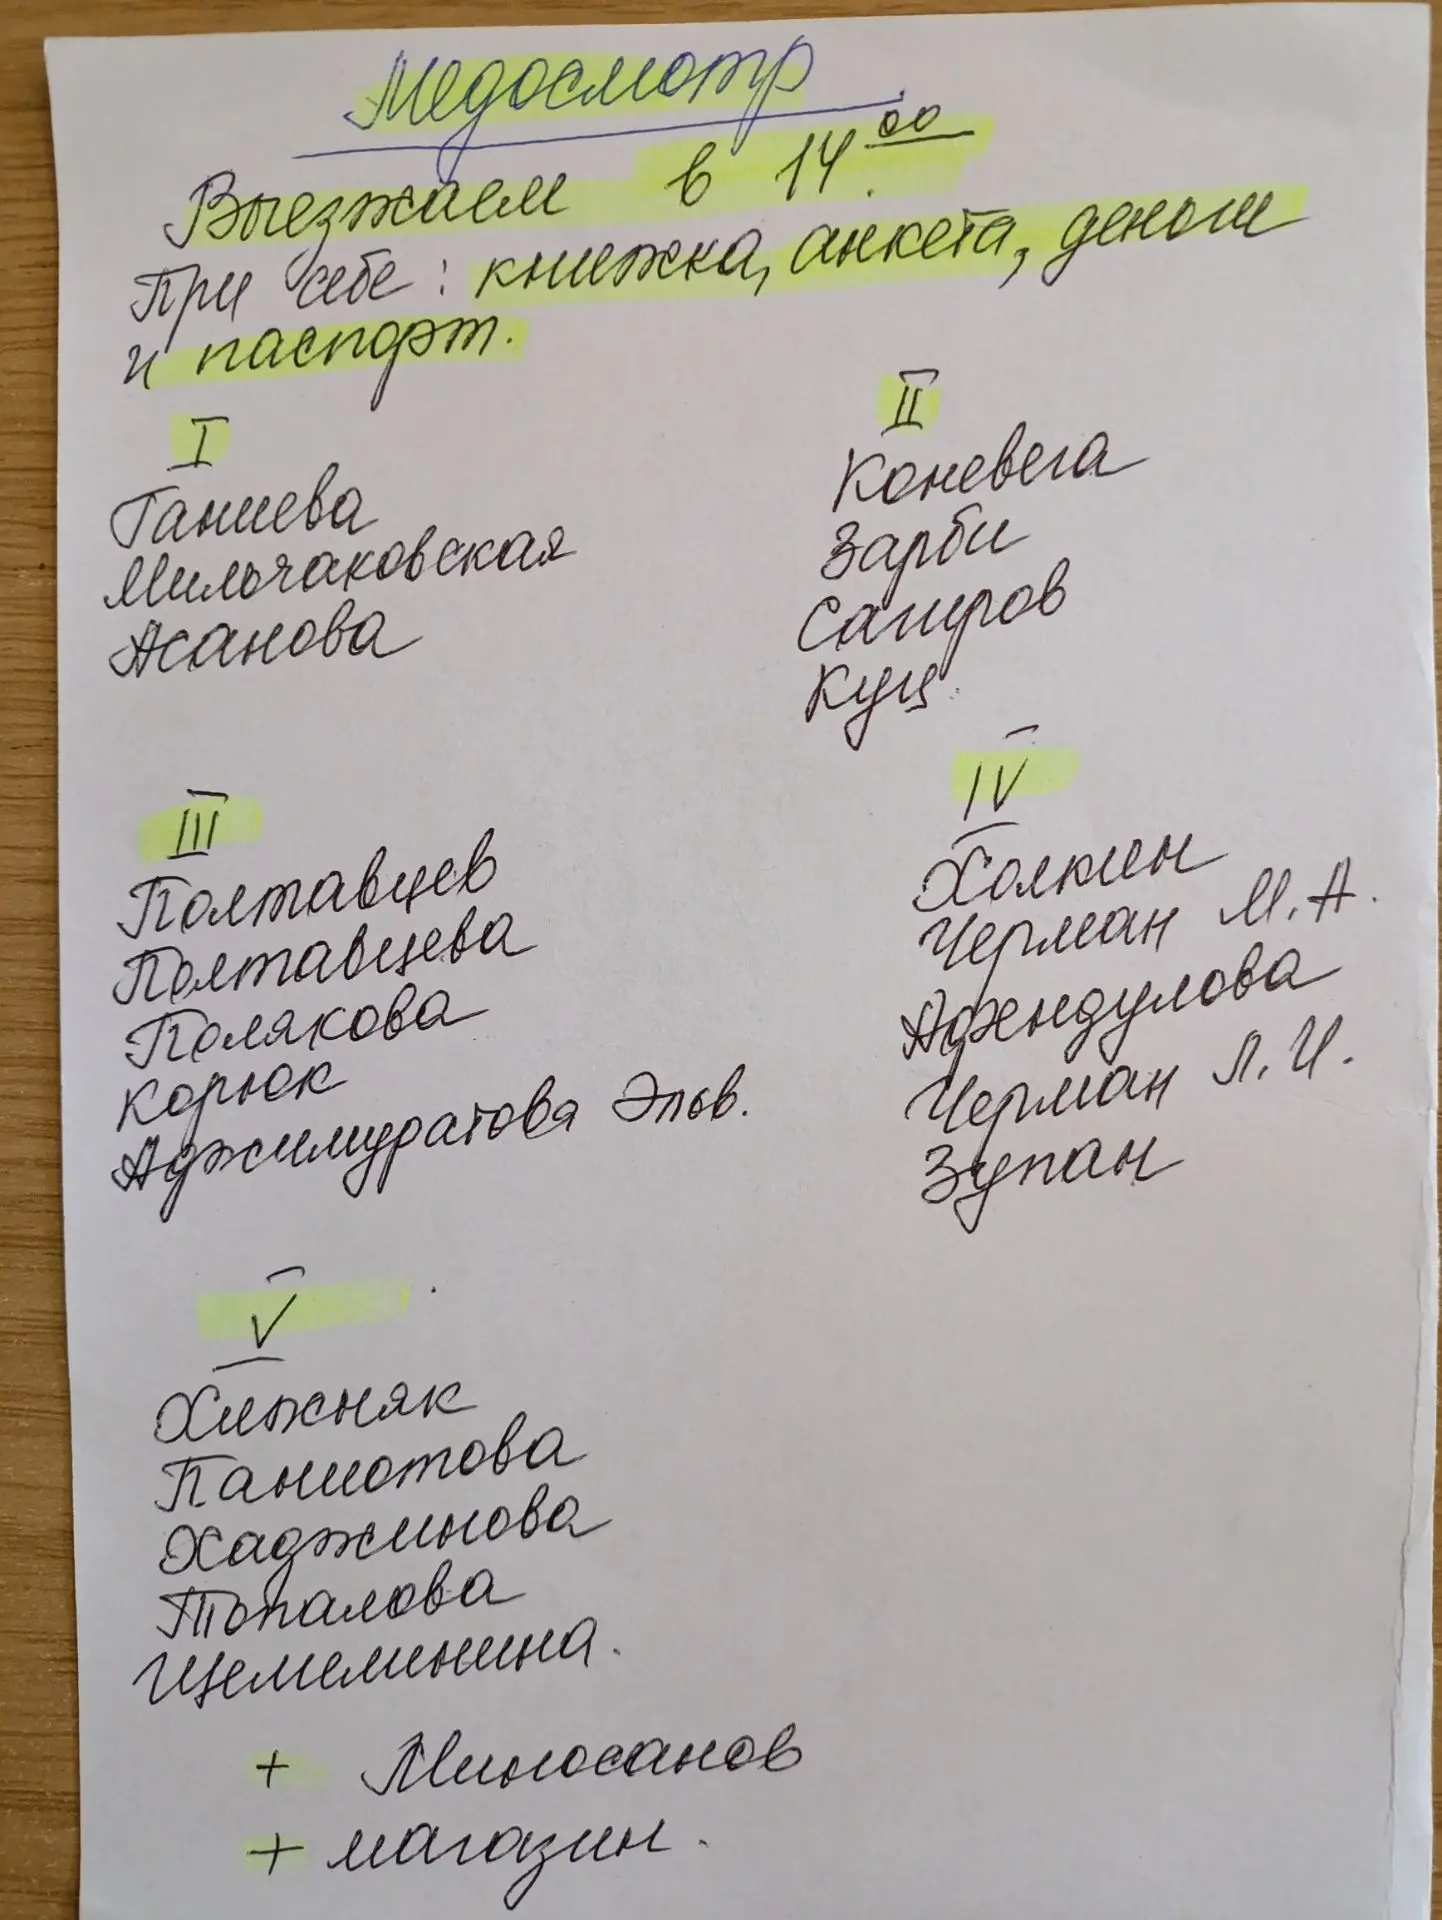 Медосмотр
Выезжаем в 14 00.
При себе: книжка, анкета, деньги
и паспорт.
I
Ганиева
Мильчаковская
Асанова
II
Коневега
Зарби
Сапиров
Куц
III
Полтавцев
Полтавцева
Полякова
Корюк
Аджимуратова Эльв.
IV
Холкин
Черман М.А.
Афендулова
Черман Л.И.
Зупан
V
Хижняк
Паниотова
Хаджинова
Топалова
Щемелинина.
+ Миносанов
+ магазин.